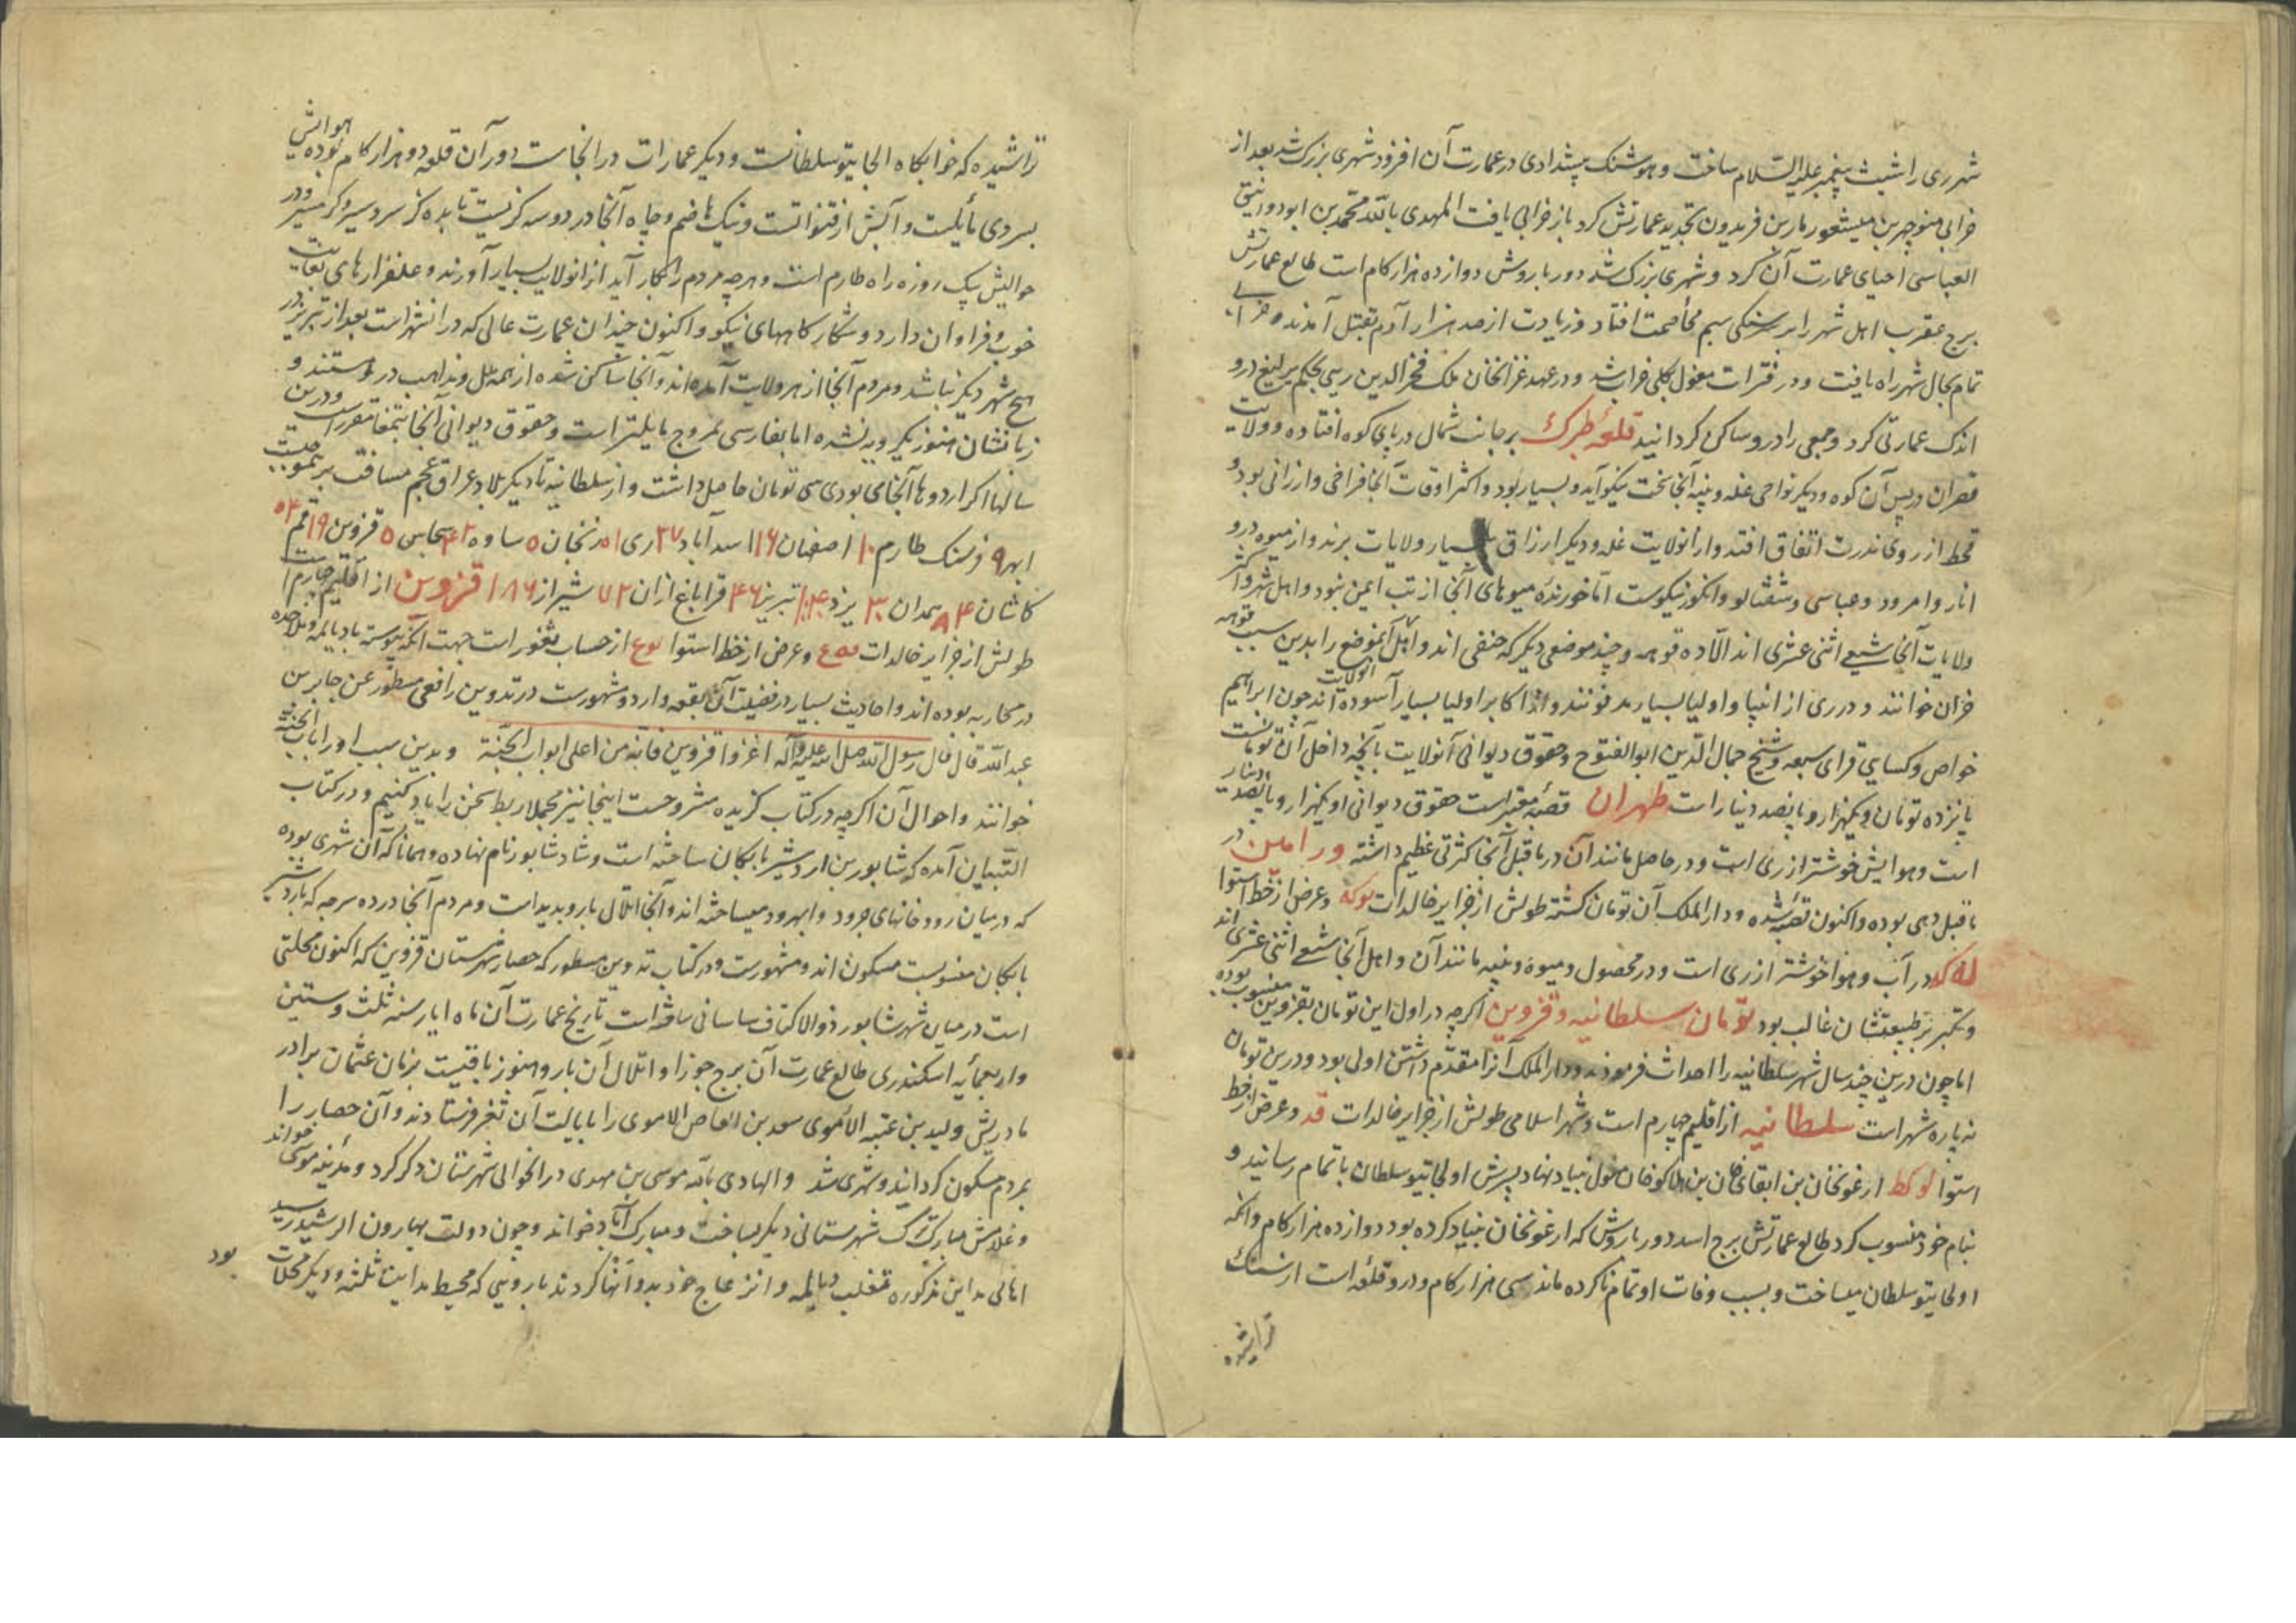 شهر ری را شیث پیغمبر علیه السلام ساخت و هوشنک پیشدادی در عمارت آن افزود شهری بزرک شد بعد از
خرابی منوچهر بن میشخور مار بن فریدون تجدید عمارتش کرد باز خرابی یافت المهدی بالله محمد بن ابودوانیق
العباسی احیای عمارت آن کرد و شهری بزرک شد دور باروش دوازده هزار کام است طالع عمارتش
برج عقرب اهل شهر را بر سنکی بهم مخاصمت افتاد و زیادت از صد هزار آدم بقتل آمدند و خرابی
تمام بحال شهر راه یافت و در فترات مغول بکلی خراب شد و در عهد غزانخان ملک فخر الدین ریی بحکم یرلیغ درو
اندک عمارتی کرد و جمعی را درو ساکن کردانید قلعه طبرک بر جانب شمال در پای کوه افتاده و ولایت
قصران در پس آن کوه و دیکر نواحی غله و پنبه آنجا سخت نیکو آید و بسیار بود و اکثر اوقات آنجا فراخی و ارزانی بود و
قحط از روی ندرت اتفاق افتد و از آنولایت غله و دیکر ارزاق بسیار ولایات برند و از میوه درو
انار و امرود و عباسی و شفتالو و انکور نیکوست اما خورنده میوهای آنجا از تب ایمن نبود و اهل شهر و اکثر
ولایات آنجا شیعی اثنی عشری اند الا ده قوهه و چند موضعی دیکر که حنفی اند و اهل آنموضع را بدین سبب قوهه
خران خوانند و در ری از انبیا و اولیا بسیار مدفونند و از اکابر و اولیا بسیار آسوده اند چون ابراهیم
خواص و کسایی قرای سبعه و شیخ جمال الدین ابوالفتوح و حقوق دیوانی آنولایت بآنچه داخل آن تومانست
پانزده تومان و یکهزار و پانصد دینار است طهران قصبه معتبر است حقوق دیوانی او یکهزار و پانصد دینار
است و هوایش خوشتر از ری است و در حاصل مانند آن در ما قبل آنجا کثرتی عظیم داشته ورامین در
ما قبل دهی بوده و اکنون قصبه شده و دار الملک آن تومان کشته طولش از جزایر خالدات توکه و عرض از خط استوا
له کد در آب و هوا خوشتر از ری است و در محصول و میوه و پنبه مانند آن و اهل آنجا شیعی اثنی عشری اند
و تکبر بر طبیعتشان غالب بود تومان سلطانیه و قزوین اکرچه در اول این تومان بقزوین منسوب بوده
اما چون درین چند سال شهر سلطانیه را احداث فرمودند و دار الملک آنرا مقدم داشتن اولی بود و درین تومان
نه پاره شهر است سلطانیه از اقلیم چهارم است و شهر اسلامی طولش از جزایر خالدات فد و عرض از خط
استوا لوکط ارغونخان بن ابقای خان بن هلاکوخان مغول بنیاد نهاد پسرش اولجایتو سلطان باتمام رسانید و
بنام خود منسوب کرد طالع عمارتش برج اسد دور باروش که ارغونخان بنیاد کرده بود دوازده هزار کام و آنکه
اولجایتو سلطان میساخت و بسبب وفات او تمام ناکرده ماند سی هزار کام و درو قلعه است از سنک
تراشیده
تراشیده که خوابکاه الجایتو سلطانست و دیکر عمارات در آنجاست دور آن قلعه دو هزار کام بوده هوایش
بسردی مایلست و آبش از قنواتست و نیک هاضم و چاه آنجا در دو سه کز نیست تا بده کز سردسیر و کرمسیر در
حوالیش یک روزه راه طارم است و هرچه مردم را بکار آید از آنولایت بسیار آورند و علفزارهای بغایت
خوب و فراوان دارد و شکارکاههای نیکو و اکنون چندان عمارت عالی که در آنشهر است بعد از تبریز در
هیچ شهر دیکر نباشد و مردم آنجا از هر ولایت آمده اند و آنجا ساکن شده از همه ملل و مذاهب در هستند و
زبانشان هنوز یکرویه نشده اما بفارسی ممزوج مایلتر است و حقوق دیوانی آنجا بتمغا مقرر است و درین
سالها اکر اردوها آنجا می بودی سی تومان حاصل داشت و از سلطانیه تا دیکر بلاد عراق عجم مسافت برینموجبست
ابهر ۹ فرسنک طارم ۱۰ اصفهان ۱۶ اسدآباد ۳۷ ری ۵۱ زنجان ۵ ساوه ۴۲ سجاس ۵ قزوین ۱۹ قم ۵۴
کاشان ۸۴ همدان ۳۰ یزد تبریز ۴۶ قراباغ اران ۷۲ شیراز ۱۸۶ قزوین از اقلیم چهارم است
طولش از جزایر خالدات و عرض از خط استوا از حساب ثغور است جهت آنکه پیوسته با دیالمه و ملاحده
در محاربه بوده اند و احادیث بسیار در فضیلت آن بقعه وارد و مشهورست در تدوین رافعی مسطور عن جابر بن
عبدالله قال قال رسول الله صلی الله علیه و آله اغزوا قزوین فانه من اعلی ابواب الجنة و بدین سبب او را باب الجنة
خوانند و احوال آن اکرچه در کتاب کزیده مشروحست اینجا نیز مجملا ربط سخن را یاد کنیم و در کتاب
التبیان آمده که شاپور بن اردشیر بابکان ساخته است و شاد شاپور نام نهاده و همانا که آن شهری بوده
که در میان رودخانهای خررود و ابهررود میساخته اند و آنجا اطلال بارو پدید است و مردم آنجا در ده سرجه که باردشیر
بابکان منسوبست مسکون اند و مشهورست و در کتاب تدوین مسطور که حصار شهرستان قزوین که اکنون محلتی
است در میان شهر شاپور ذوالاکتاف ساسانی ساخته است تاریخ عمارت آن ماه ایار سنه ثلث و ستین
و اربعمایه اسکندری طالع عمارت آن برج جوزا و اطلال آن بارو هنوز باقیست بزمان عثمان برادر
مادریش ولید بن عتبه الاموی سعد بن العاص الاموی را بایالت آن ثغر فرستادند و آن حصار را
بمردم مسکون کردانید و شهری شد و الهادی بالله موسی بن مهدی در آنحوالی شهرستان دکر کرد و مدینه موسی خواند
و غلامش مبارک ترک شهرستانی دیکر بساخت و مبارک آباد خواند و چون دولت بهارون الرشید رسید
اهالی مداین مذکوره تغلب دیالمه و انزعاج خود بدو انها کردند بارویی که محیط مداین ثلثه و دیکر محلات
بود